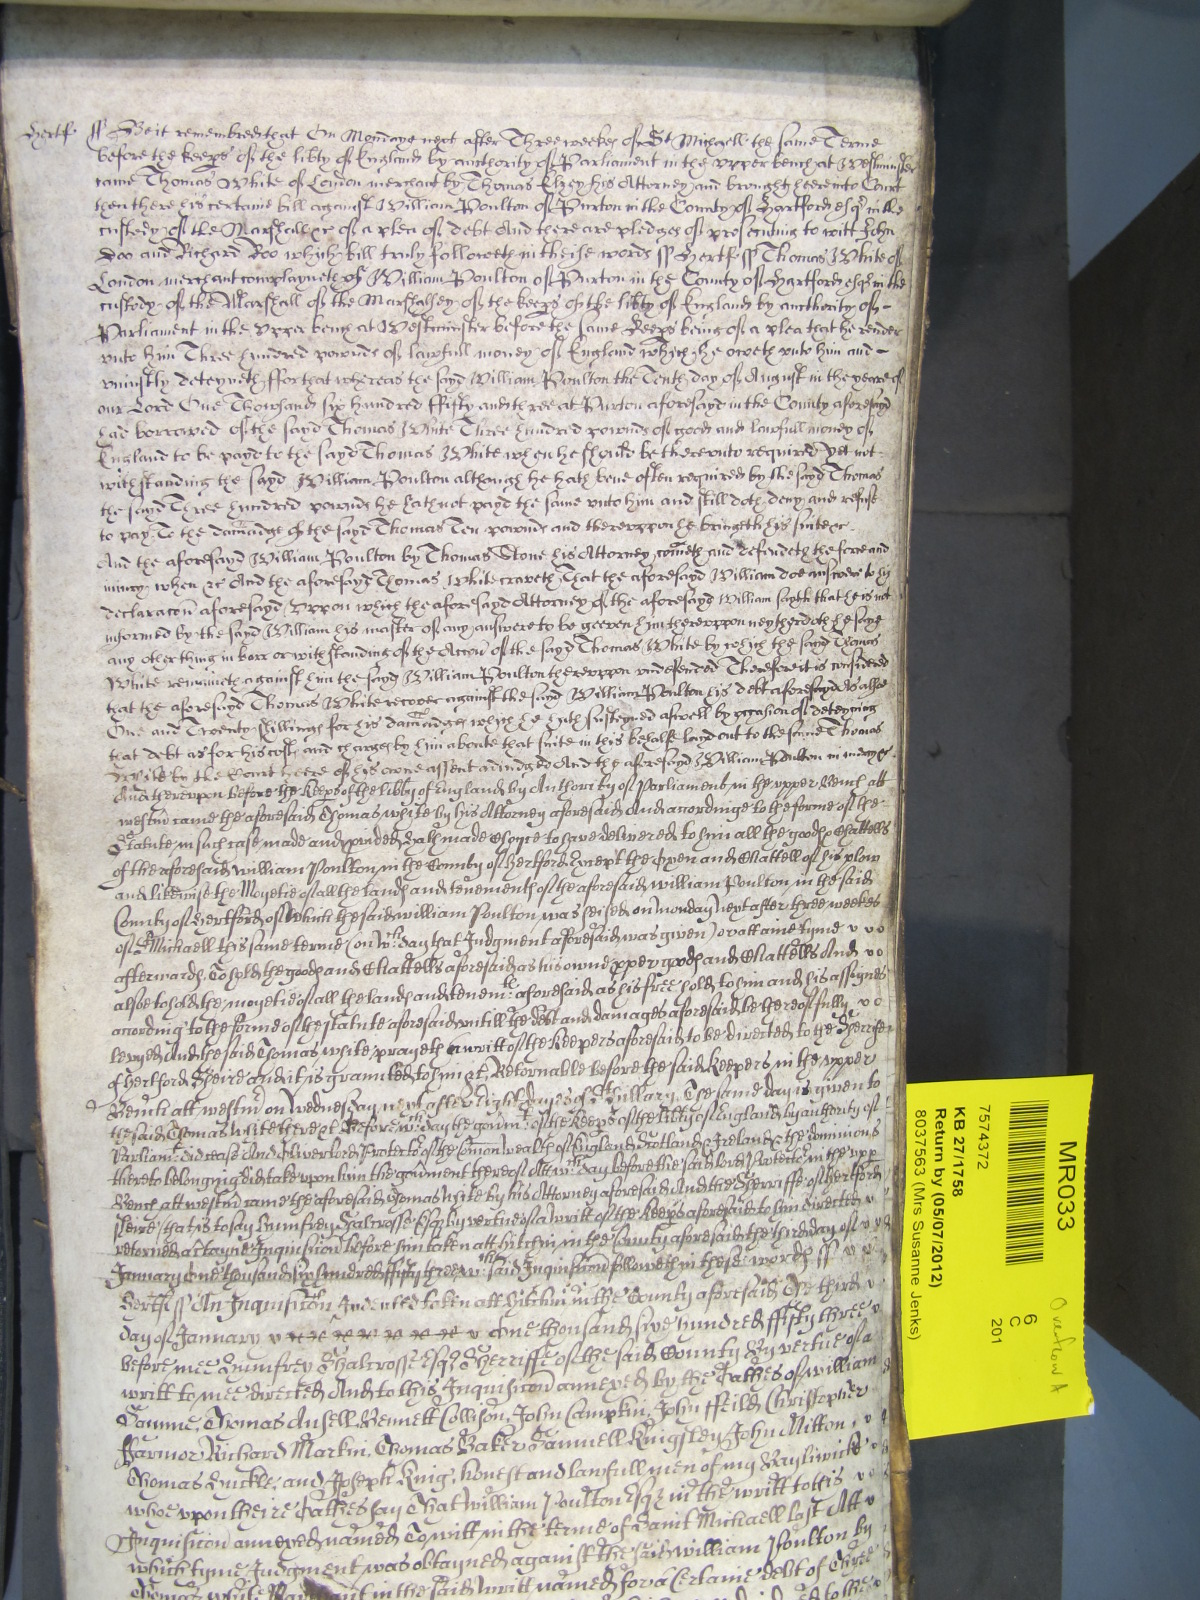 Hertf ss Be it remembred that On Mondaye next after Three weekes of St Michaell the same Terme
before the keeps of the libty of England by authority of Parliament in the vpper bench at Westminster
came Thomas White of London merchant by Thomas his Attorney and brought heere into Court
then there his certaine bill against William Poulton of Purton in the County of Hartford esqr in the
custody of the Marshall &c of a plea of debt And there are pledges of prosecuting to witt John
Doo and Richard Roo which bill truly followeth in theise words ss Hertf ss Thomas White of
London merchant complayneth of William Poulton of Purton in the County of Hartford esqr in the
custody of the Marshall of the Marshalsey of the keeps of the libty of England by authority of
Parliament in the vpper bench at Westminster before the same keeps being of a plea that he render
vnto him Three hundred pownds of lawfull money of England which he oweth vnto him and
vniustly deteyneth ffor that whereas the sayd William Poulton the Tenth day of August in the yeare of
our Lord One Thowsand six hundred ffifty and three at Purton aforesayd in the County aforesayd
had borrowed of the sayd Thomas White Three hundred pownds of good and lawfull money of
England to be payd to the sayd Thomas White when he should be therevnto required yet not
withstanding the sayd William Poulton although he hath bene often required by the sayd Thomas
the sayd Three hundred pownds he hath not payd the same vnto him and still doth deny and refuse
to pay To the damadge of the sayd Thomas Ten pownds and therevppon he bringeth his suite &c
And the aforesayd William Poulton by Thomas Stone his Attorney cometh and defendeth the force and
iniury when &c And the aforesayd Thomas White craveth That the aforesayd William doe answere to his
declaracon aforesayd Vppon which the aforesayd Attorney of the aforesayd William sayth that he is not
informed by the sayd William his master of any answere to be geeven him therevppon neyther doth he saye
any other thing in barr or withstanding of the Accon of the sayd Thomas White by which the sayd Thomas
White remaineth against him the sayd William Poulton therevppon vndefended Therefore it is considered
that the aforesayd Thomas White recover against the sayd William Poulton his debt aforesayd As allso
One and Twenty shillings for his damadges which he hath susteyned aswell by occasion of deteyning
that debt as for his costs and charges by him aboute that suite in this behalfe layd out to the same Thomas
White by the Court heere of his owne assent adiudged And the aforesayd William Poulton in mercy &c
And therevpon before the Keeps of the libty of England by Authority of Parliament in the vpper Bench att
westmr came the aforesaid Thomas white by his Attorney aforesaid And accordinge to the forme of the
Statute in such case made and pvided hath made Choyce to have delivered to him all the goods & Chattells
of the aforesaid william Poulton in the County of Hertford Except the Oxen and Chattell of his plow
and likewise the Moyetie of all the lands and tenements of the aforesaid william Poulton in the said
County of Hertford of which the said william Poulton was seised on monday next after three weekes
of St Michaell this same terme (on wch day that Judgment aforesaid was given) or att anie tyme
afterwards To hold the goods and Chattells aforesaid as his owne pper goods and Chattells And
alsoe to hold the moyetie of all the lands and tenemts aforesaid as his free hold to him and his assignes
according to the forme of the statute aforesaid untill the debt and damages aforesaid be thereof fully
levyed And the said Thomas white prayeth a writt of the Keepers aforesaid to be directed to the Sherriffe
of Hertford Sheire and it is graunted to him &c Retornable before the said Keepers in the vpper
Bench att westmr on Wednesday next after eight dayes of St Hillary. The same day is given to
the said Thomas White there &c Before wch day the govmt of the Keeps of the libty of England by authority of
Parliamt did cease And Oliver lord Protector of the Comon wealth of England Scotland & Ireland & the dominions
thereto belonging did take vpon him the government thereof Att wch day before the said lord Protector in the vpp
Bench att westmr came the aforesaid Thomas white by his Attorney aforesaid And the Sherriffe of Hertford
sheire that is to say Humfrey Shalcrosse Esqr by vertue of a writt of the Keeps aforesaid to him directed
retorned a certayne Inquisicon before him taken att hitchin in the County aforesaid the third day of
January one thousand six hundred fifty three wch said Inquisicon followeth in these words ss
Hertf ss An Inquisicon Indented taken att hitchin in the County aforesaid The third
day of January One thousand sixe hundred ffifty three
before mee Humfrey Shalcrosse Esqr Sherriffe of the said County By vertue of a
writt to mee directed And to this Inquisicon annexed by the Oathes of william
Thomas Ansell Bennett Collison, John Campkin, John ffeild Christopher
ffarmor Richard Martin, Thomas Baker Samuell Kingsley John Mitton
Thomas Huckle, and Joseph King, honest and lawfull men of my Bayliwicke
whoe vpon theire Oathes say That william Poulton Esqr in the writt to this
Inquisicon annexed named To witt in the terme of Saint Michaell last Att
which tyme Judgment was obtayned against the said william Poulton by
Thomas white in the said writt named for a Certaine debt of Three
MR033
6
C
201
75743372
KB 27/1758
Return by (05/07/2012)
8037563 (Mrs Susanne Jenks)
Overflow A